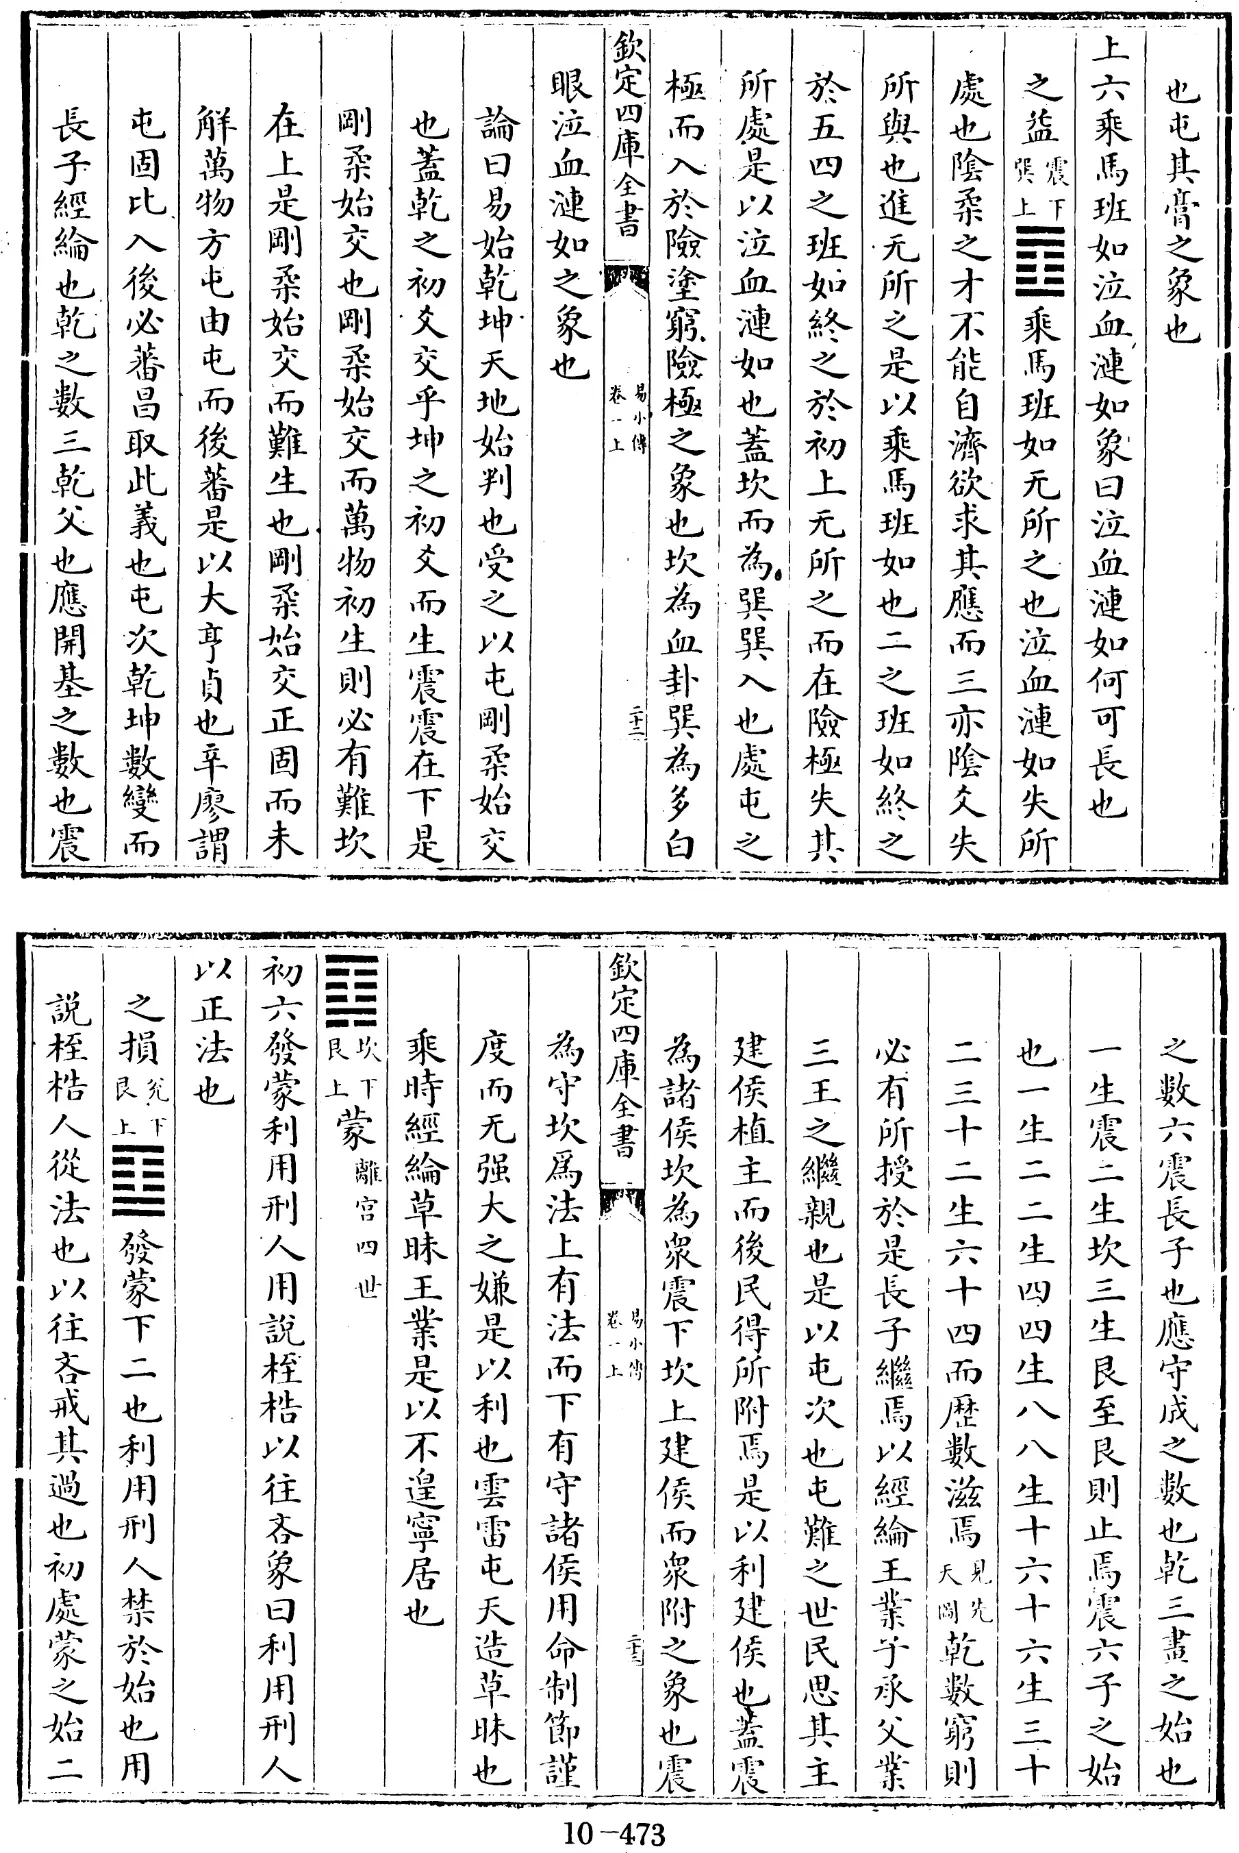 也屯其膏之象也
上六乘馬班如泣血漣如象曰泣血漣如何可長也
之益震下巽上䷩乘馬班如无所之也泣血漣如失所
處也陰柔之才不能自濟欲求其應而三亦陰爻失
所與也進无所之是以乘馬班如也二之班如終之
於五四之班如終之於初上无所之而在險極失其
所處是以泣血漣如也蓋坎而為巽巽入也處屯之
極而入於險塗窮險極之象也坎為血卦巽為多白
欽定四庫全書
易小傳
卷一上
二十二
眼泣血漣如之象也
論曰易始乾坤天地始判也受之以屯剛柔始交
也蓋乾之初爻交乎坤之初爻而生震震在下是
剛柔始交也剛柔始交而萬物初生則必有難坎
在上是剛柔始交而難生也剛柔始交正固而未
解萬物方屯由屯而後蕃是以大亨貞也辛廖謂
屯固比入後必蕃昌取此義也屯次乾坤數變而
長子經綸也乾之數三乾父也應開基之數也震
之數六震長子也應守成之數也乾三畫之始也
一生震二生坎三生艮至艮則止焉震六子之始
也一生二二生四四生八八生十六十六生三十
二三十二生六十四而歷數滋焉見先天圖乾數窮則
必有所授於是長子繼焉以經綸王業子承父業
三王之繼親也是以屯次也屯難之世民思其主
建侯植主而後民得所附焉是以利建侯也蓋震
為諸侯坎為衆震下坎上建侯而衆附之象也震
欽定四庫全書
易小傳
卷一上
二十三
為守坎爲法上有法而下有守諸侯用命制節謹
度而无强大之嫌是以利也雲雷屯天造草昧也
乘時經綸草昧王業是以不遑寧居也
䷃坎下艮上蒙離宮四世
初六發蒙利用刑人用說桎梏以往吝象曰利用刑人
以正法也
之損兌下艮上䷨發蒙下二也利用刑人禁於始也用
說桎梏人從法也以往吝戒其過也初處蒙之始二
10-473